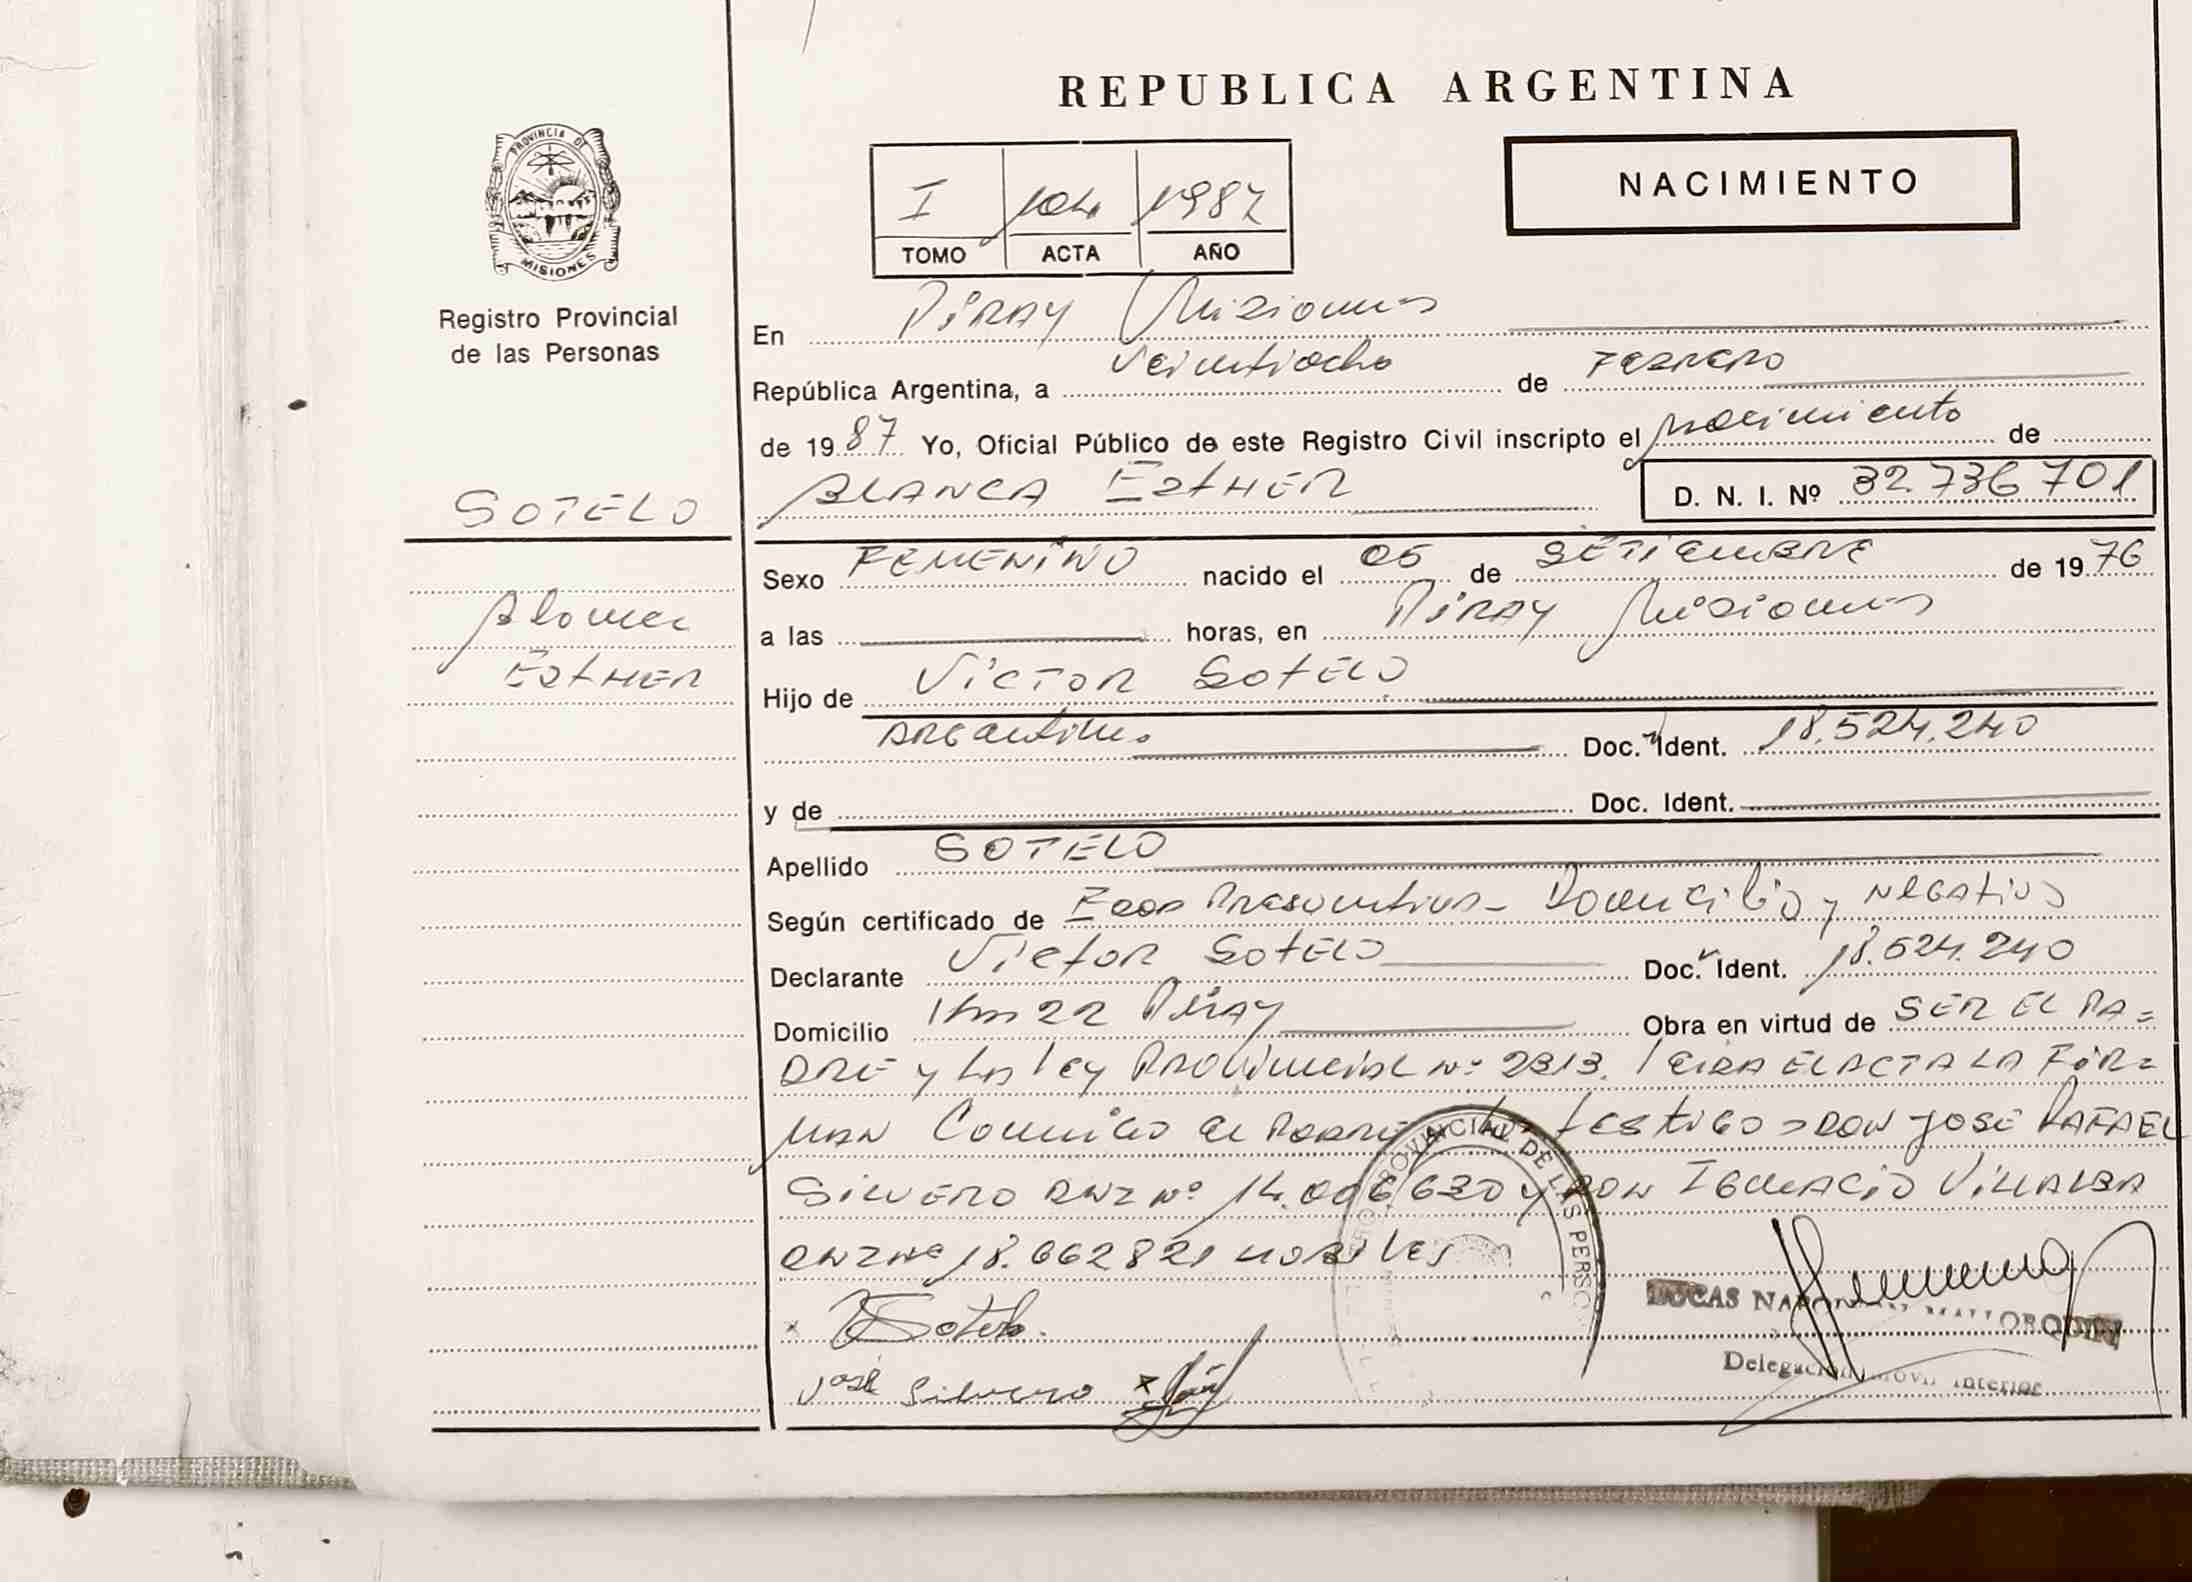 REPUBLICA ARGENTINA
PROVINCIA DE
MISIONES
Registro Provincial
de las Personas
SOTELO
Blanca
EstHER
I 104 1987
TOMO ACTA AÑO
NACIMIENTO
En Piray Misiones
República Argentina, a veintiocho de FEBRERO
de 1987 Yo, Oficial Público de este Registro Civil inscripto el nacimiento de
BLANCA EstHER D. N. I. Nº 32.736.701
Sexo FEMENINO nacido el 05 de SETIEMBRE de 1976
a las horas, en Piray Misiones
Hijo de Victor Sotelo
ARGentino Doc. Ident. 18.524.240
y de Doc. Ident.
Apellido SOTELO
Según certificado de Edad Presuntiva - Domicilio y Negativo
Declarante Victor Sotelo Doc. Ident. 18.524.240
Domicilio Km 22 Piray Obra en virtud de SER EL PA=
DRE y La ley PROVINCIAL Nº 2313. leida EL ACTA LA FIR=
MAN Conmigo el Padre testigos DON JOSE RAFAEL
SILVERO DNI Nº 14.006.630 y DON IGNACIO VILLALBA
DNI Nº 18.662821 HABILES
x Sotelo.
José Silvero x
PROVINCIAL DE LAS PERSO
LUCAS
Delegación Móvil Interior